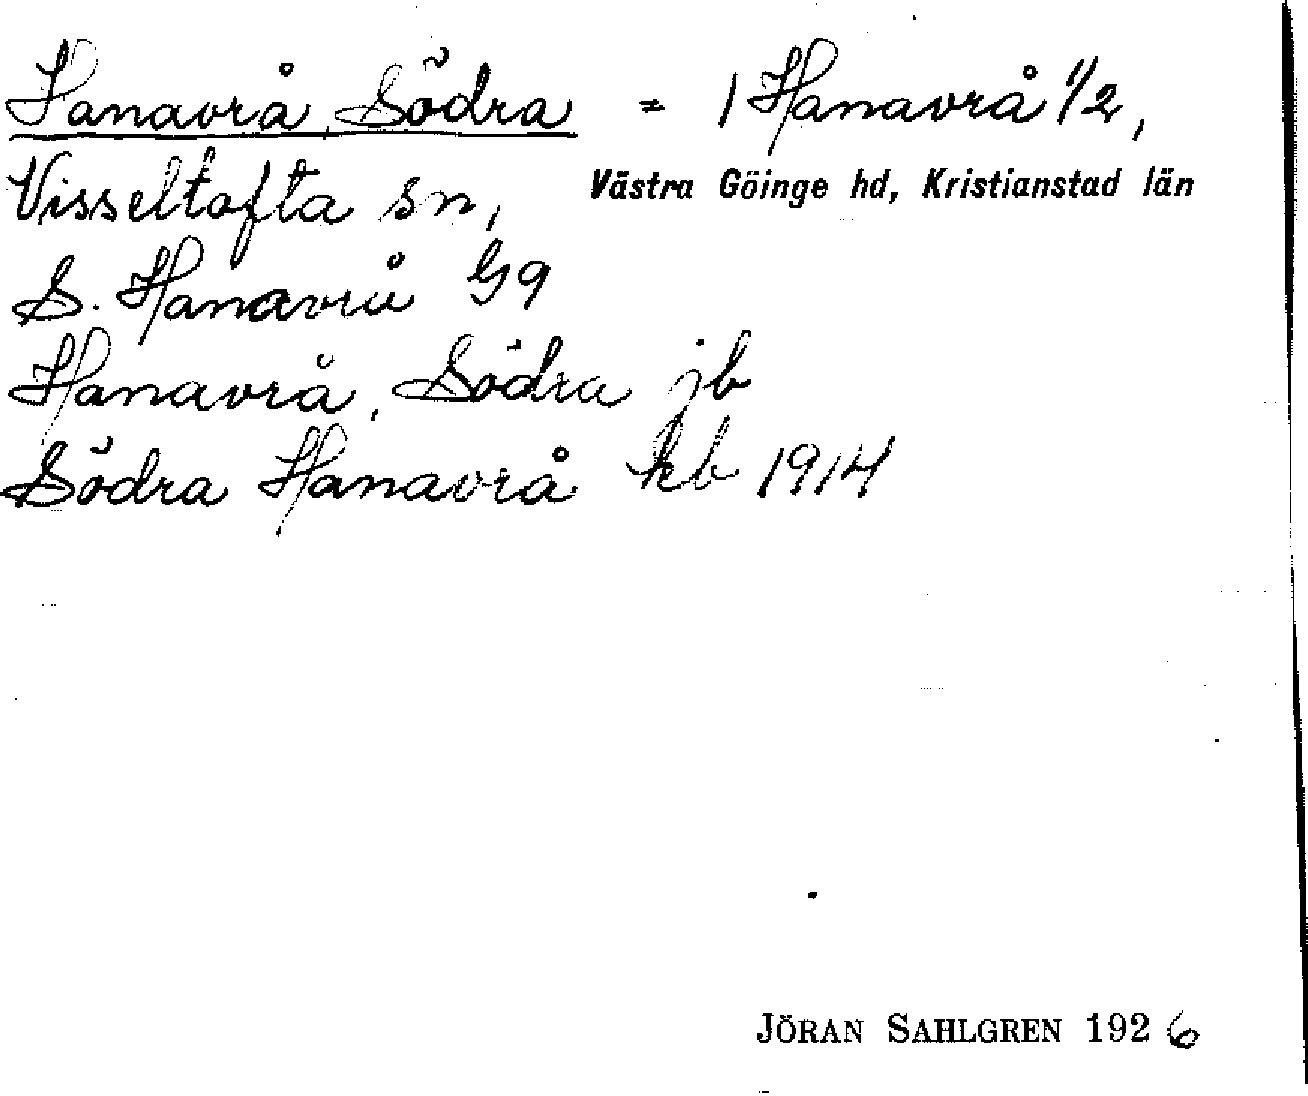 Hanavrå, Södra = 1 Hanavrå 1/2,
Visseltofta sn, Västra Göinge hd, Kristianstad län
S. Hanavrå G9
Hanavrå, Södra jb
Södra Hanavrå kb 1914
JÖRAN SAHLGREN 1926